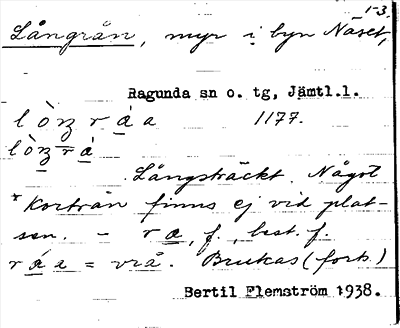 1-3.
Långrån, myr i byn Näset,
Ragunda sn o. tg, Jämtl.l.
lòŋ r á a 1177.
lòŋ r á
Långsträckt. Något
*Kortrån finns ej vid plat-
sen. - r æ, f., best. f.
r á a = vrå. Brukas (forts.)
Bertil Flemström 1938.